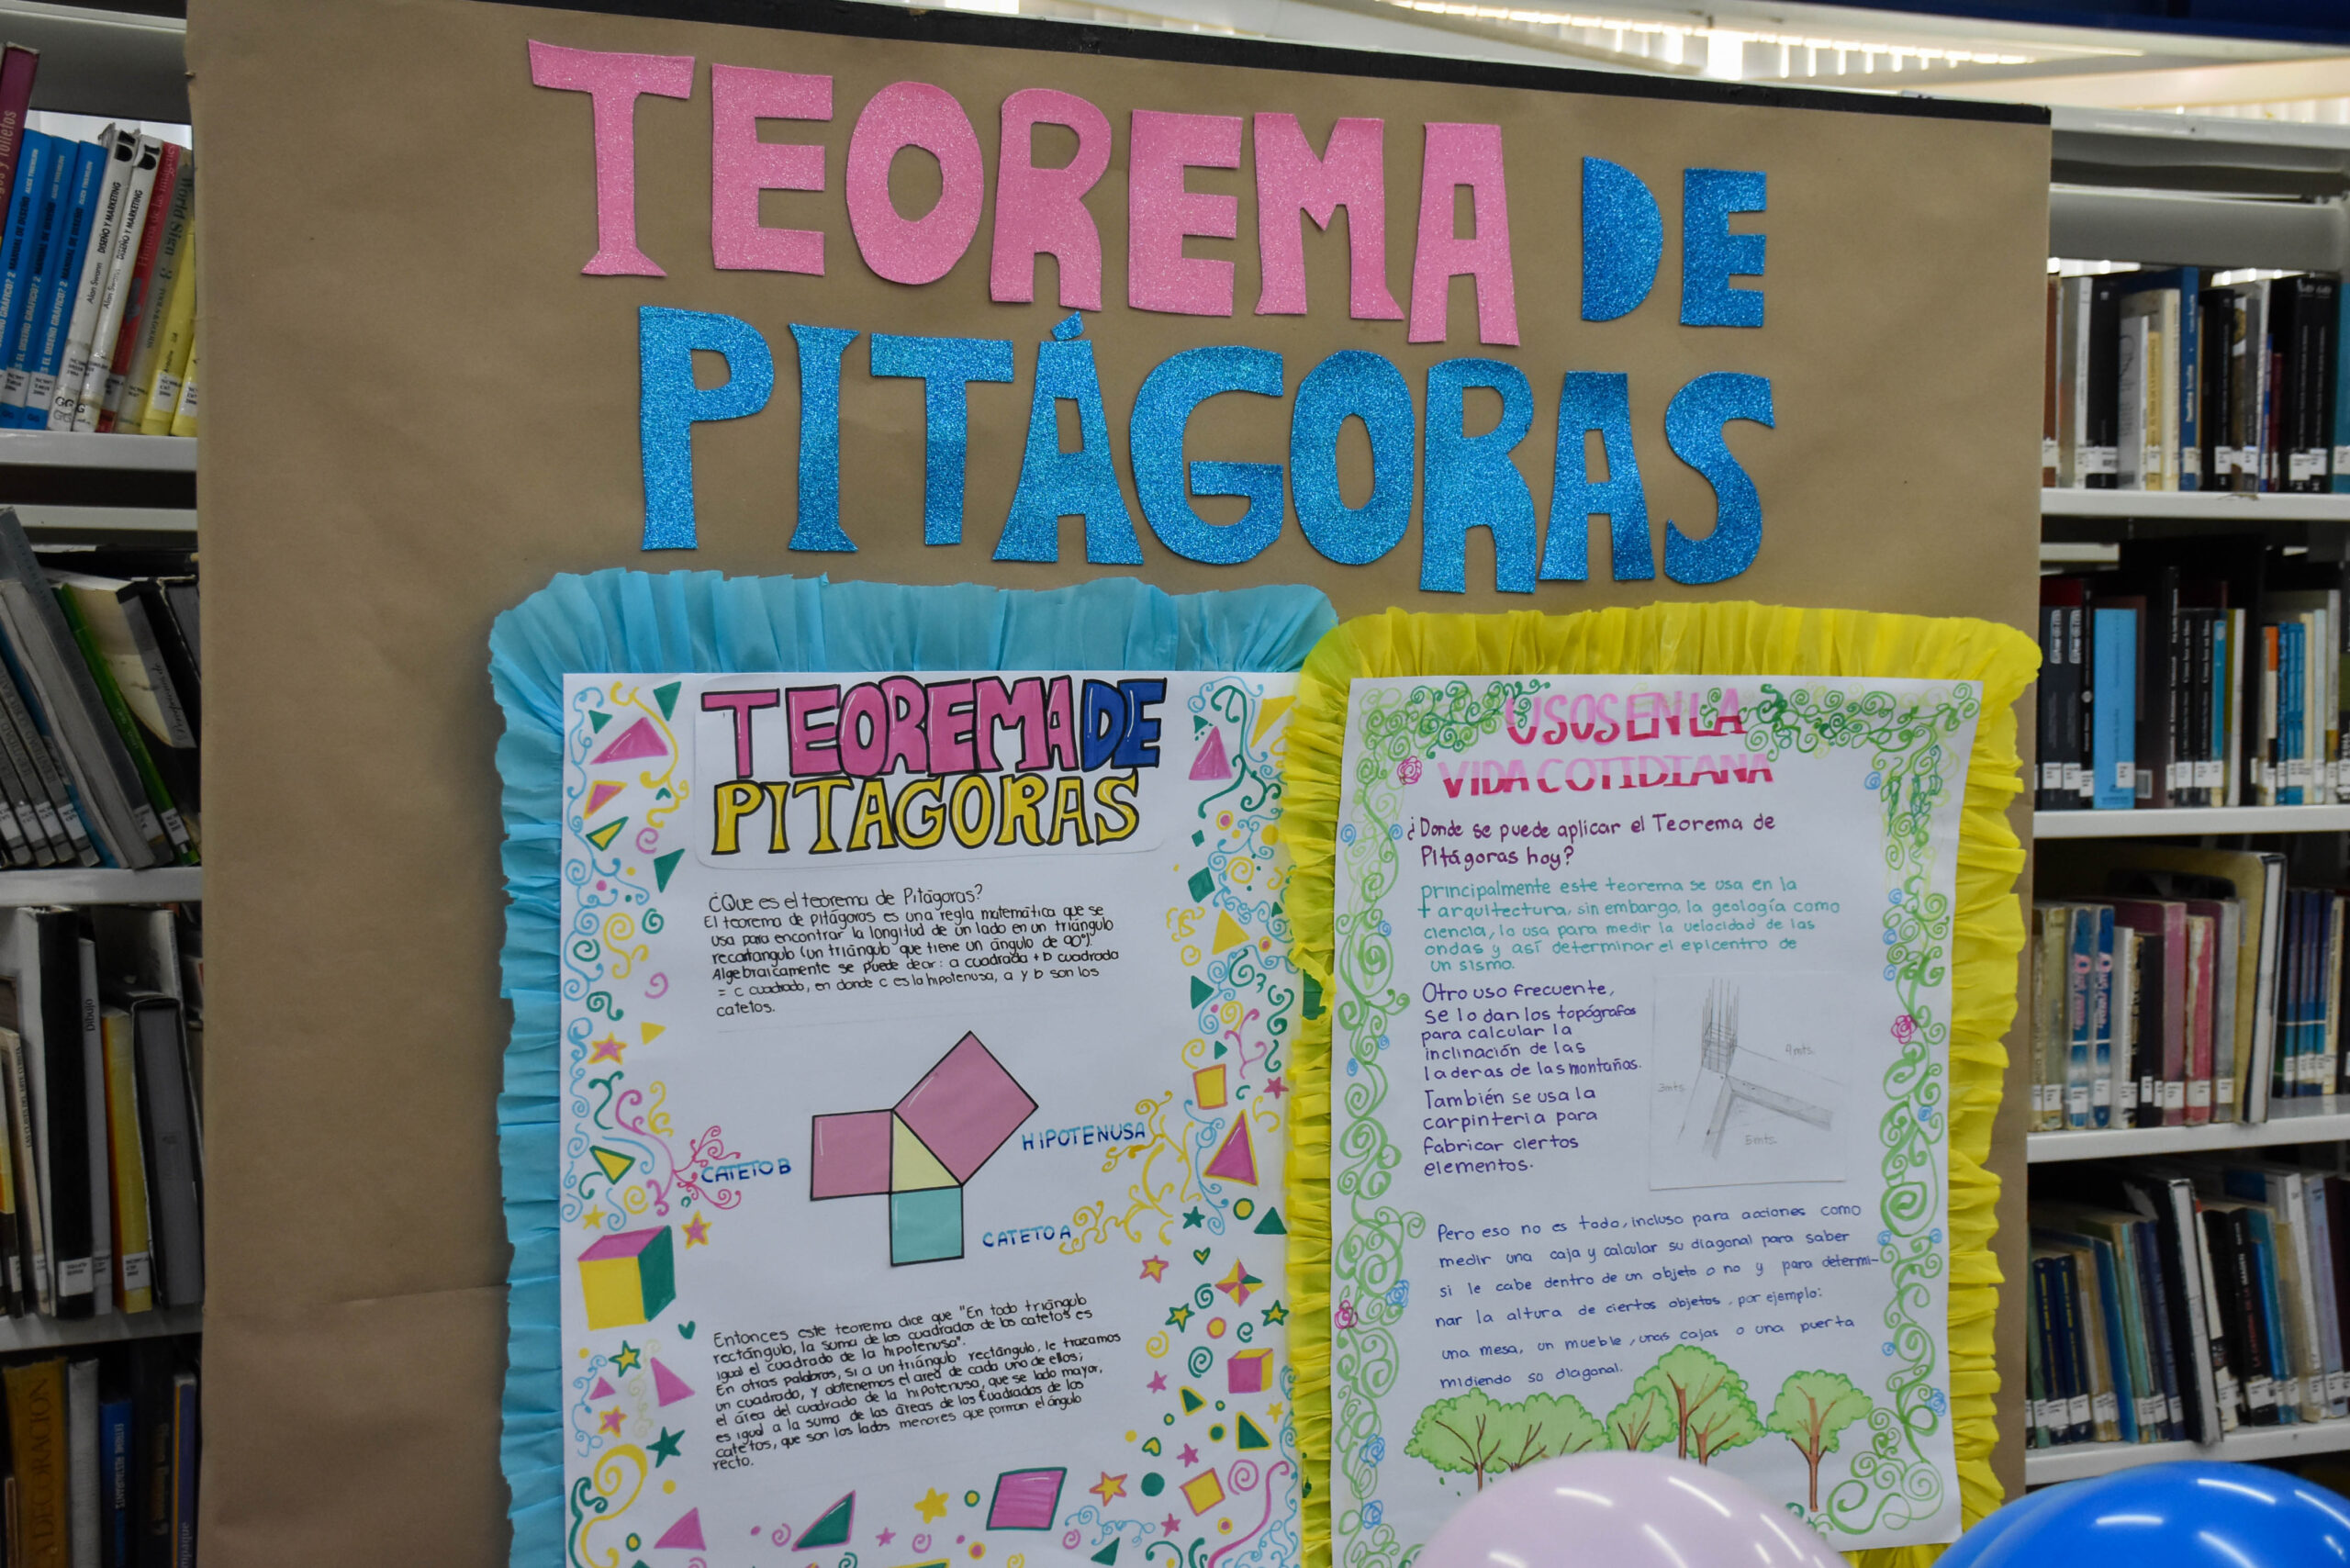 TEOREMA DE
PITÁGORAS
TEOREMA DE
PITAGORAS
¿Que es el teorema de Pitágoras?
El teorema de pitágoras es una regla matemática que se
usa para encontrar la longitud de un lado en un triángulo
recartangulo (un triángulo que tiene un ángulo de 90°).
Algebraicamente se puede decir: a cuadrada + b cuadrada
= c cuadrado, en donde c es la hipotenusa, a y b son los
catetos.
HIPOTENUSA
CATETO B
CATETO A
Entonces este teorema dice que "En todo triángulo
rectángulo, la suma de los cuadrados de los catetos es
igual el cuadrado de la hipotenusa".
En otras palabras, si a un triángulo rectángulo, le trazamos
un cuadrado, y obtenemos el area de cada uno de ellos;
el área del cuadrado de la hipotenusa, que se lado mayor,
es igual a la suma de las áreas de los cuadrados de los
catetos, que son los lados menores que forman el ángulo
recto.
USOS EN LA
VIDA COTIDIANA
¿Donde se puede aplicar el Teorema de
Pitágoras hoy?
principalmente este teorema se usa en la
+ arquitectura, sin embargo, la geología como
ciencia, lo usa para medir la velocidad de las
ondas y así determinar el epicentro de
un sismo.
Otro uso frecuente,
se lo dan los topógrafos
para calcular la
inclinación de las
laderas de las montañas.
También se usa la
carpinteria para
fabricar ciertos
elementos.
4mts.
3mts
5mts.
Pero eso no es todo, incluso para acciones como
medir una caja y calcular su diagonal para saber
si le cabe dentro de un objeto o no y para determi-
nar la altura de ciertos objetos, por ejemplo:
una mesa, un mueble, unas cajas o una puerta
midiendo so diagonal.
Alan Swann DISEÑO Y MARKETING
Alan Swann DISEÑO Y MARKETING
World Sign 3
Dibujo